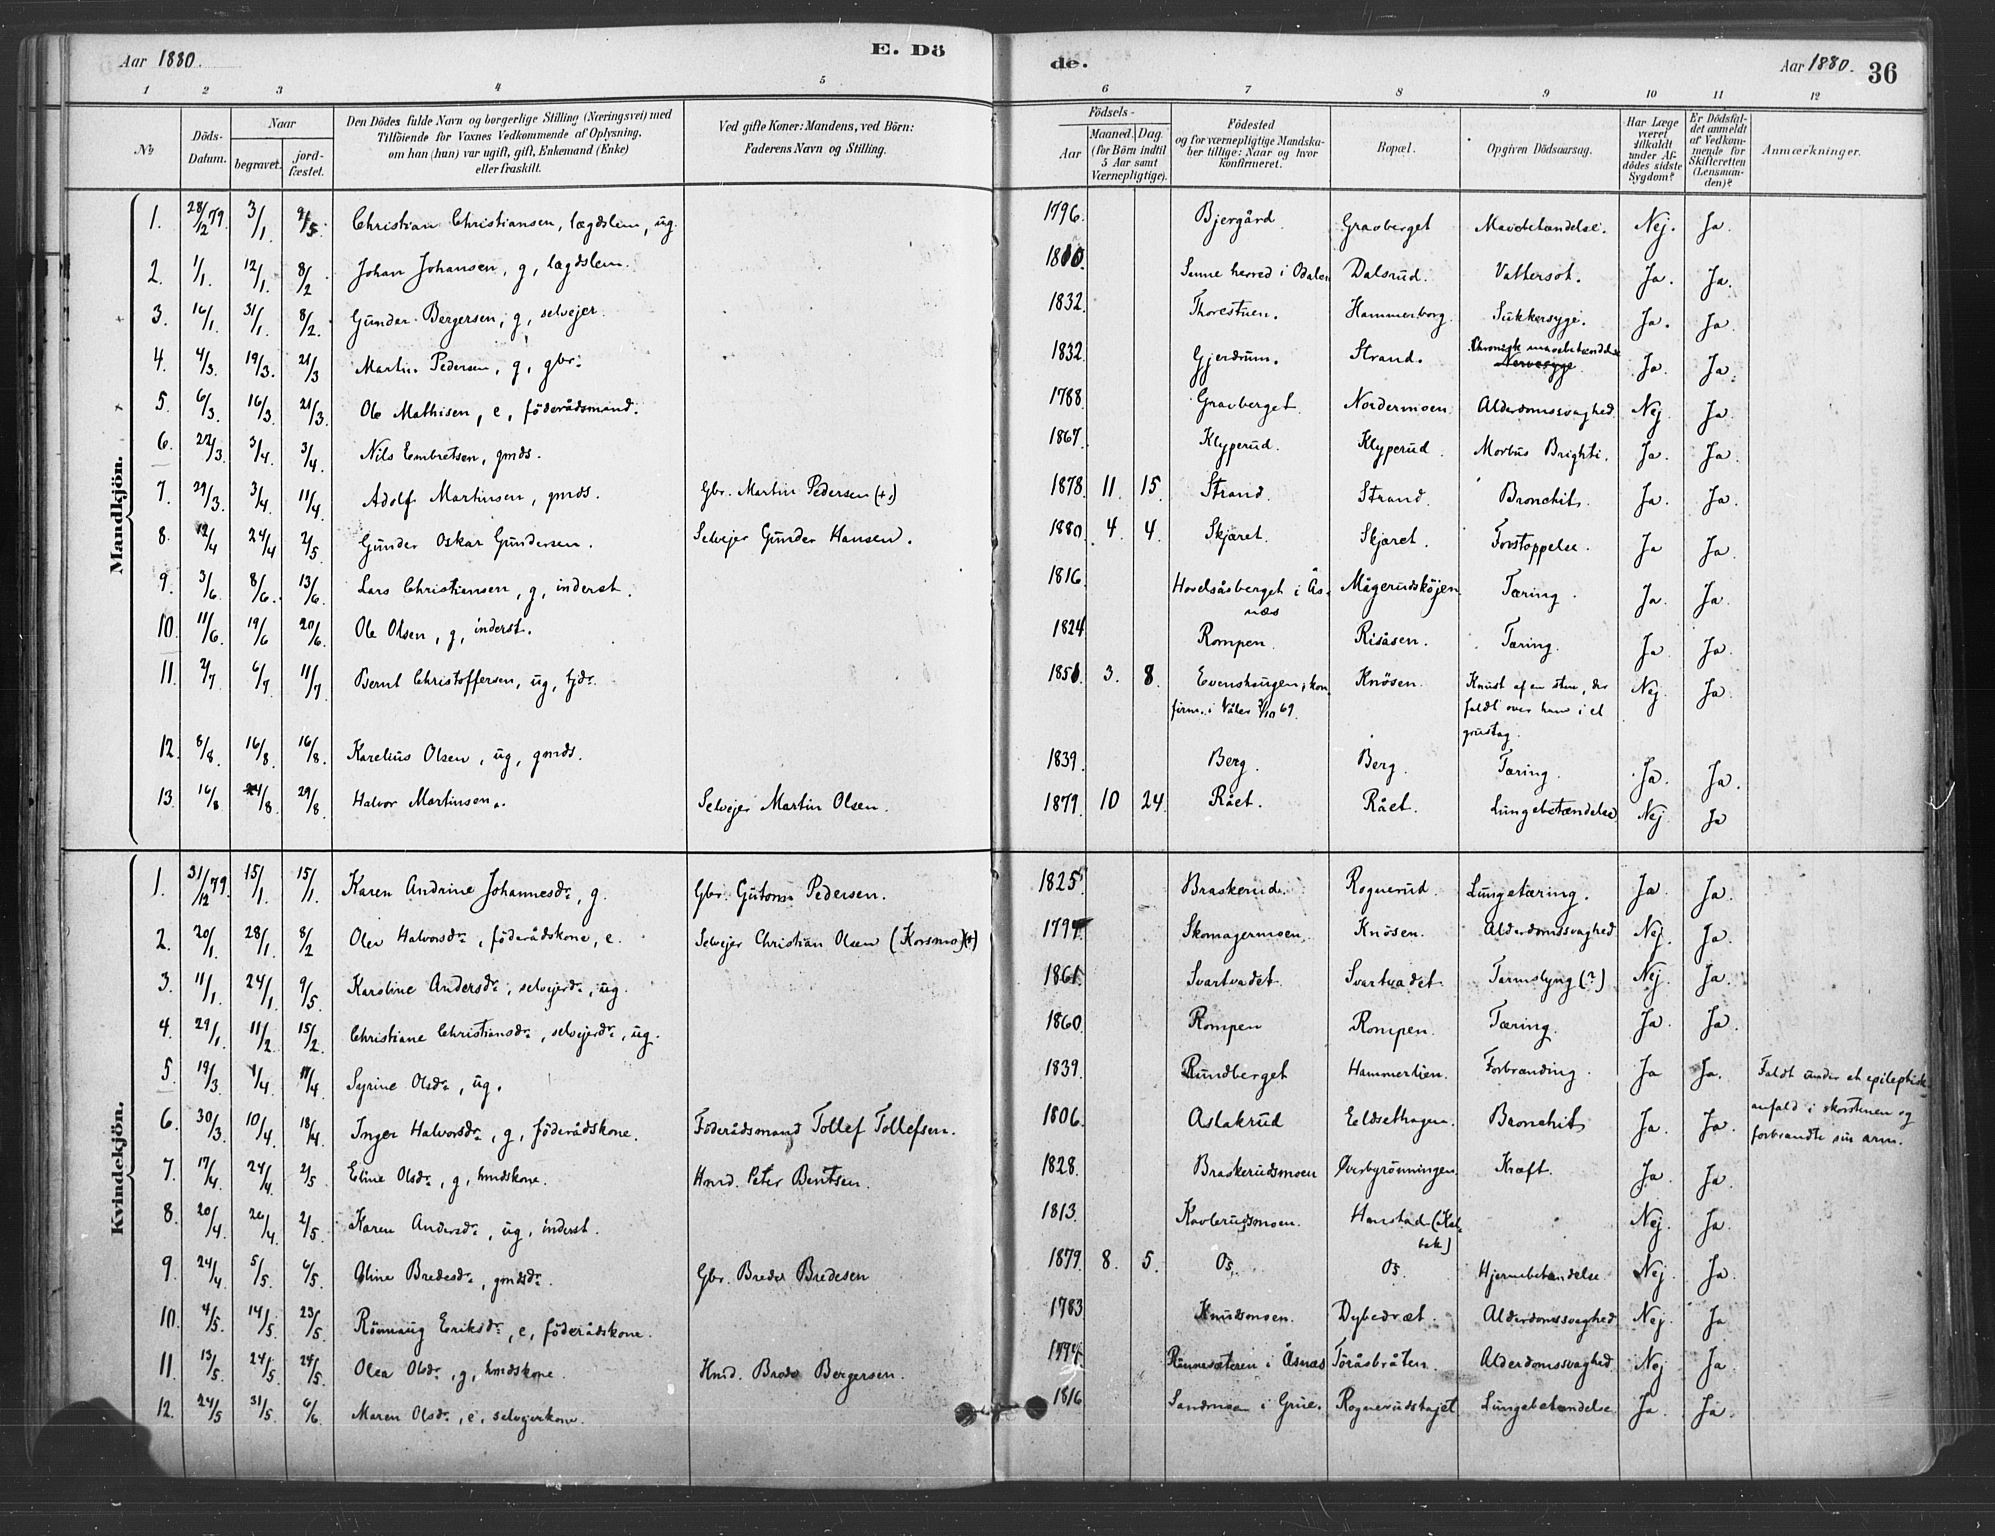 Aar 1880. E. Dö
de. Aar 1880. 36
1 2 3 4 5 6 7 8 9 10 11 12
No
Döds-Datum.
Naar
begravet.
jord-fæstet.
Den Dödes fulde Navn og borgerlige Stilling (Næringsvei) med
Tilföiende for Voxnes Vedkommende af Oplysning,
om han (hun) var ugift, gift, Enkemand (Enke)
eller fraskilt.
Ved gifte Koner: Mandens, ved Börn:
Faderens Navn og Stilling.
Födsels-
Aar
Maaned. Dag.
(for Börn indtil
5 Aar samt
Værnepligtige).
Födested
og for værnepligtige Mandska-
ber tillige: Naar og hvor
konfirmeret.
Bopæl.
Opgiven Dödsaarsag.
Har Læge
været
tilkaldt
under Af-
dödes sidste
Sygdom?
Er Dödsfal-
det anmeldt
af Vedkom-
mende for
Skifteretten
(Lensman-
den)?
Anmærkninger.
Mandkjön.
1. 28/12 79. 3/1 9/5. Christian Christiansen, lægdslem, ug. 1796. Bjergård Gravberget Mavebetændelse. Nej. Ja.
2. 1/1. 12/1. 8/2 Johan Johansen, g, lægdslem. 1810. Sunne herred i Odalen Dalsrud. Vattersot. Ja. Ja.
3. 16/1. 31/1. 8/2. Gunder Bergersen, g, selvejer. 1832. Thorestuen. Hammerborg. Sukkersyge. Ja. Ja.
4. 4/3. 19/3. 21/3 Martin Pedersen, g, gbr. 1832. Gjerdrum. Strand. Chronisk mavebetændelse Nervesyge Ja. Ja.
5. 6/3. 16/3. 21/3. Ole Mathisen, e, föderådsmand. 1788. Gravberget Nordermoen Alderdomssvaghed Nej. Ja.
6. 22/3. 3/4. 3/4. Nils Embretsen, gmds. 1867. Klyperud. Klyperud. Morbus Brighti. Ja. Ja.
7. 29/3. 3/4. 11/4. Adolf Martinsen, gmds. Gbr. Martin Pedersen (+) 1878. 11. 15. Strand. Strand. Bronchit. Ja. Ja.
8. 12/4 24/4 2/5 Gunder Oskar Gundersen. Selvejer Gunder Hansen. 1880. 4. 4. Skjæret. Skjæret. Forstoppelse. Ja Ja.
9. 3/6. 8/6. 13/6. Lars Christiansen, g, inderst. 1816. Hovelsåsberget i Ås-
næs Mågerudsköjen Tæring. Ja. Ja.
10. 11/6. 19/6 20/6. Ole Olsen, g, inderst. 1824. Rompen. Risåsen. Tæring. Ja Ja.
11. 2/7 6/7 11/7 Bernt Christoffersen, ug, tjdr. 1851. 3. 8. Evenshaugen, kon-
firm. i Våler 3/10 69. Knösen. Knust af en sten, der
faldt over ham i et
grustag. Nej. Ja.
12. 8/8. 16/8. 16/8. Karelius Olsen, ug, gmds. 1839. Berg. Berg. Tæring. Ja. Ja.
13. 16/8 24/8. 29/8. Halvor Martinsen. Selvejer Martin Olsen. 1879. 10 24. Rået. Rået. Lungebetændelse Nej. Ja
Kvindekjön.
1. 31/12 79. 15/1. 15/1. Karen Andrine Johannesdr, g. Gbr. Gutorm Pedersen. 1825. Braskerud. Rognerud. Lungetæring. Ja. Ja.
2. 20/1. 28/1. 8/2 Olea Halvorsdr, föderådskone, e. Selvejer Christian Olsen (Korsmo) (+) 1797 Skomagermoen. Knösen. Alderdomssvaghed Nej. Ja.
3. 11/1. 24/1. 9/5. Karoline Andersdr, selvejerdr, ug. 1861. Svartvadet Svartvadet Tarmslyng (?) Nej. Ja.
4. 29/1. 11/2. 15/2. Christiane Christiansdr, selvejerdr, ug. 1860. Rompen Rompen. Tæring. Ja. Ja.
5. 19/3 1/4. 11/4 Syrine Olsdr, ug. 1839. Rundberget Hammerlien. Forbrænding. Ja Ja. Faldt under et epileptisk
anfald i skorstenen og
forbrændte sin arm.
6. 30/3. 10/4. 18/4. Inger Halvorsdr, g, föderådskone. Föderådsmand Tollef Tollefsen. 1806. Aslakrud Eldsethagen. Bronchit Ja. Ja.
7. 17/4. 24/4. 2/5. Eline Olsdr, g, hmdskone. Hmd. Peter Bentsen. 1828. Braskerudsmoen Øverbyrönningen. Kræft. Ja. Ja.
8. 20/4. 26/4. 2/5. Karen Andersdr, ug, inderst. 1813. Kavlerudsmoen. Nej. Ja.
9. 24/4 5/5. 6/5. Oline Bredesdr, gmdsdr. Gbr. Brede Bredesen 1879. 8. 5. Os. Os. Hjernebetændelse. Nej. Ja.
10. 4/5. 14/5. 23/5. Rönnaug Eriksdr, e, föderådskone. 1783 Knudsmoen. Dybedræt. Alderdomssvaghed Nej. Ja
11. 13/5. 24/5. 24/5. Olea Olsdr, g, hmdskone. Hmd. Brede Bergersen. Rönnesæteren i Åsnæs Toråsbråten. Alderdomssvaghed Nej Ja
12. 24/5 31/5. 6/6. Maren Olsdr, e, selvejerkone. 1816 Sandmoen i Grue. Rognerudshøjet Lungebetændelse Ja. Ja.